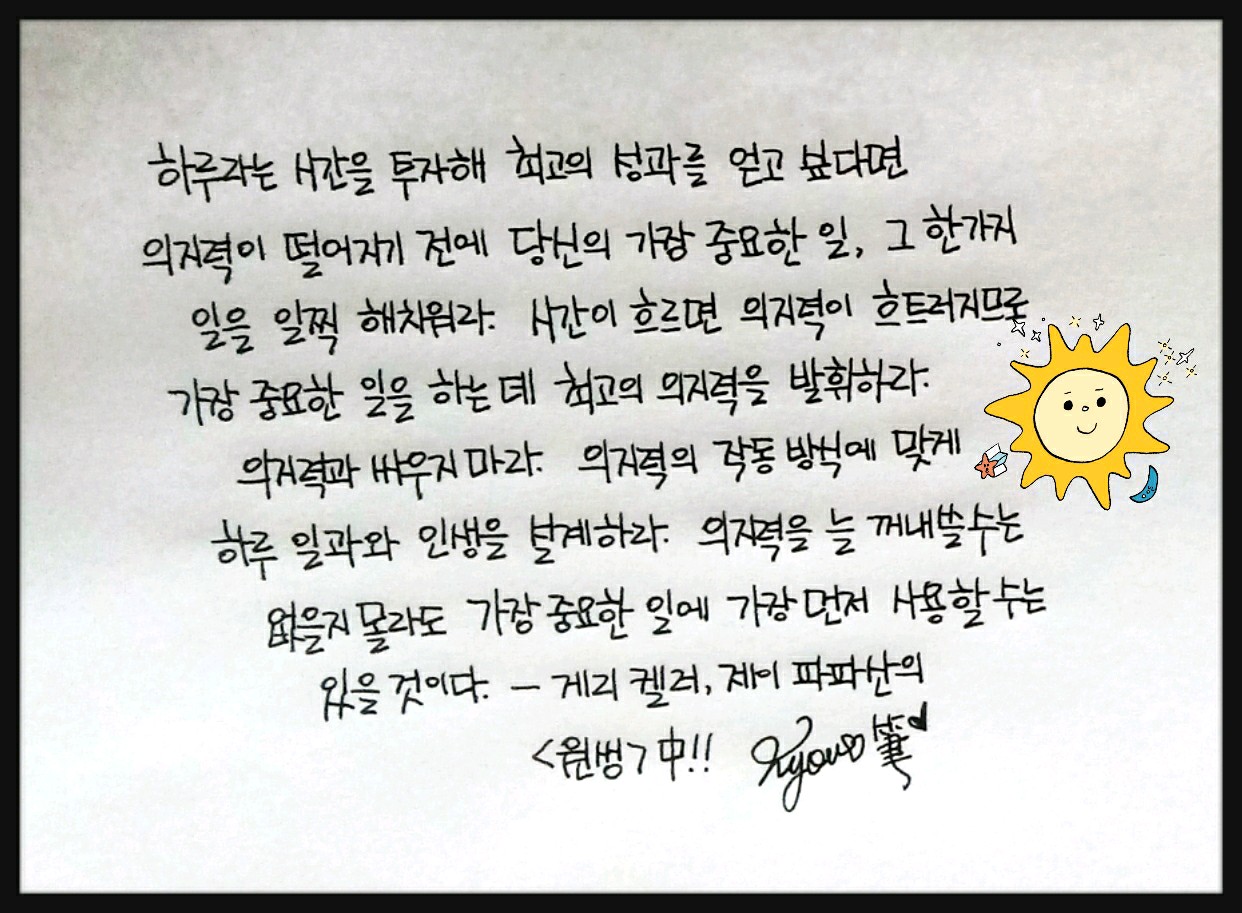 하루라는 시간을 투자해 최고의 성과를 얻고 싶다면
의지력이 떨어지기 전에 당신의 가장 중요한 일, 그 한가지
일을 일찍 해치워라. 시간이 흐르면 의지력이 흐트러지므로
가장 중요한 일을 하는 데 최고의 의지력을 발휘하라.
의지력과 싸우지 마라. 의지력의 작동 방식에 맞게
하루 일과와 인생을 설계하라. 의지력을 늘 꺼내쓸 수는
없을지 몰라도 가장 중요한 일에 가장 먼저 사용할 수는
있을 것이다. - 게리 켈러, 제이 파파산의
<원씽> 中!! Kyou 筆